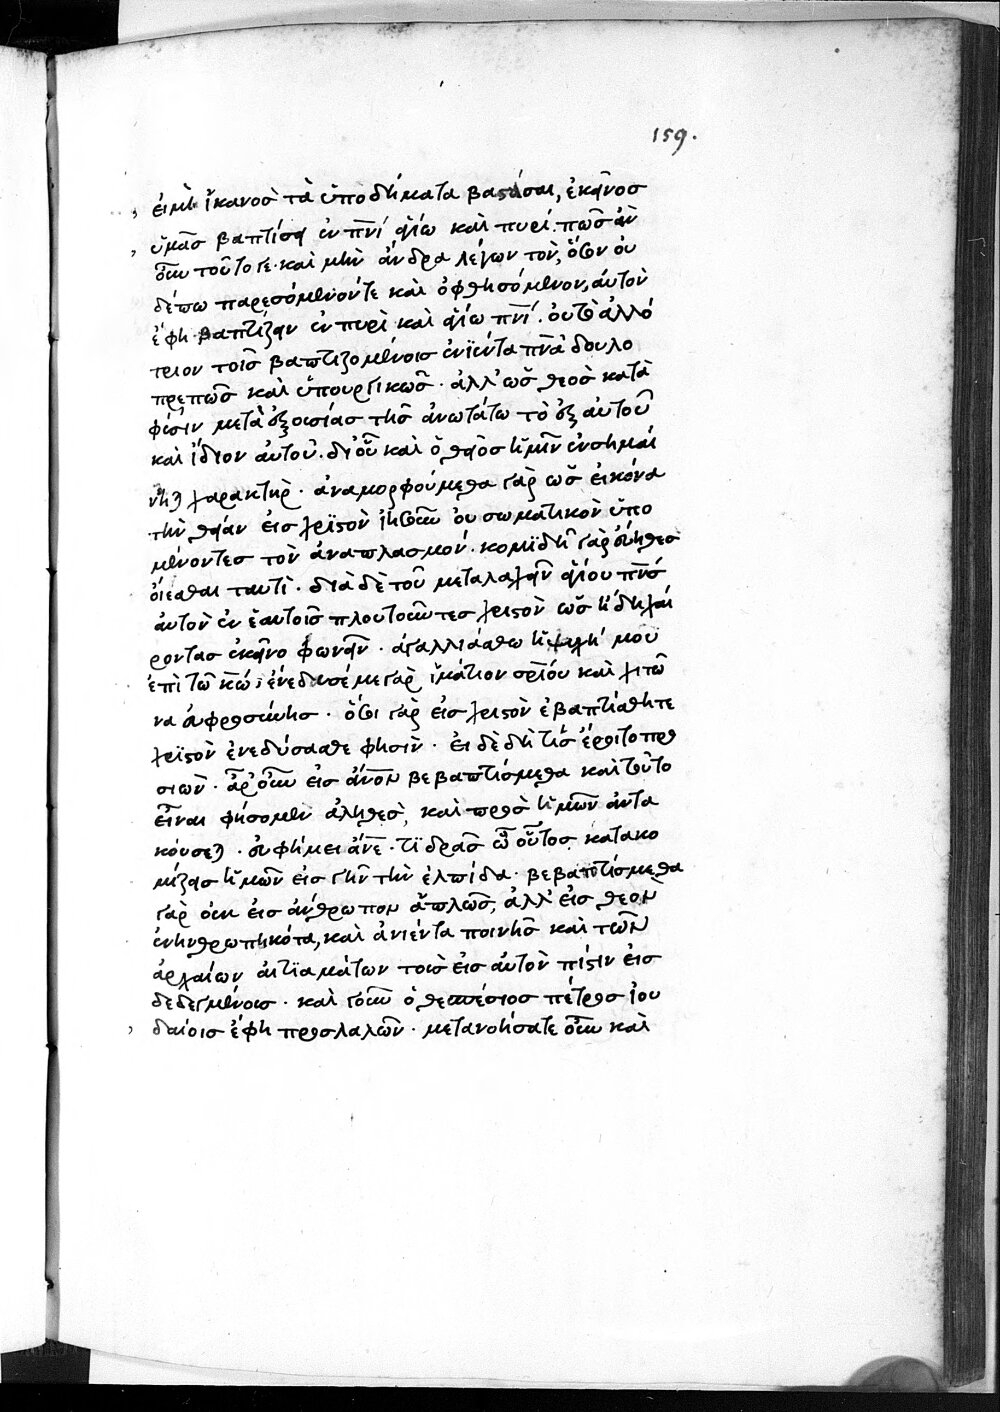 159.
εἰμὶ ἱκανὸσ τὰ ὑποδήματα βαϛάσαι, ἐκεῖνοσ
ὑμᾶσ βαπτίσει ἐν πνι ἁγίω καὶ πυρί. πῶσ ἂν
οὖν τοῦτο γε. καὶ μὴν ἄνδρα λέγων τὸν, ὅσον οὐ
δέπω παρεσόμενόν τε καὶ ὀφθησόμενον, αὐτὸν
ἔφη βαπτίζειν ἐν πυρὶ καὶ ἁγίω πνι. οὔτι ἀλλό
τριον τοῖσ βαπτιζομένοισ ἐνϊέντα πνα δουλο
πρεπῶσ καὶ ὑπουργικῶσ. ἀλλ' ὡσ θεὸσ κατὰ
φύσιν μετὰ ἐξουσίασ τῆσ ἀνωτάτω τὸ ἐξ αὐτοῦ
καὶ ἴδιον αὐτοῦ. δι' οὗ καὶ ὁ θεῖοσ ἡμῖν ἐνσημαί
νεται χαρακτήρ. ἀναμορφούμεθα γὰρ ὡσ εἰκόνα
τὴν θείαν εἰσ χριϛὸν ἰησοῦν οὐ σωματικὸν ὑπο
μένοντεσ τὸν ἀναπλασμόν. κομϊδῆ γὰρ εὔηθεσ
οἴεσθαι ταυτί. διὰ δὲ τοῦ μεταλαχεῖν ἁγίου πνσ
αὐτὸν ἐν ἑαυτοῖσ πλουτοῦντεσ χριϛὸν ὡσ ἤδη χαί
ροντασ ἐκεῖνο φωνεῖν. ἀγαλλιάσθω ἡ ψυχή μου
ἐπὶ τῶ κω· ἐνέδυσέ με γὰρ ἱμάτιον σρίου καὶ χιτῶ
να εὐφροσύνησ. ὅσοι γὰρ εἰσ χριϛὸν ἐβαπτίσθητε
χριϛὸν ἐνεδύσασθε φησίν. εἰ δὲ δή τισ ἔροιτο προ
σιών. ἆρ' οὖν εἰσ ἄνον βεβαπτίσμεθα καὶ τοῦτο
εἶναι φήσομεν ἀληθεσ, καὶ πρὸσ ἡμῶν ἀντα
κούσεται. εὐφήμει ἄνε. τί δρᾶσ ὦ οὗτοσ κατακο
μίζασ ἡμῶν εἰσ γῆν τὴν ἐλπίδα. βεβαπτίσμεθα
γὰρ οὐκ εἰσ ἄνθρωπον ἁπλῶσ, ἀλλ' εἰσ θεὸν
ἐνηνθρωπηκότα, καὶ ἀνιέντα ποινῆσ καὶ τῶν
ἀρχαίων αἰτϊαμάτων τοὺσ εἰσ αὐτὸν πίϛιν εἰσ
δεδεγμένουσ. καὶ γοῦν ὁ θεσπέσιοσ πέτροσ ἰου
δαίοισ ἔφη προσλαλῶν. μετανοήσατε οὖν καὶ